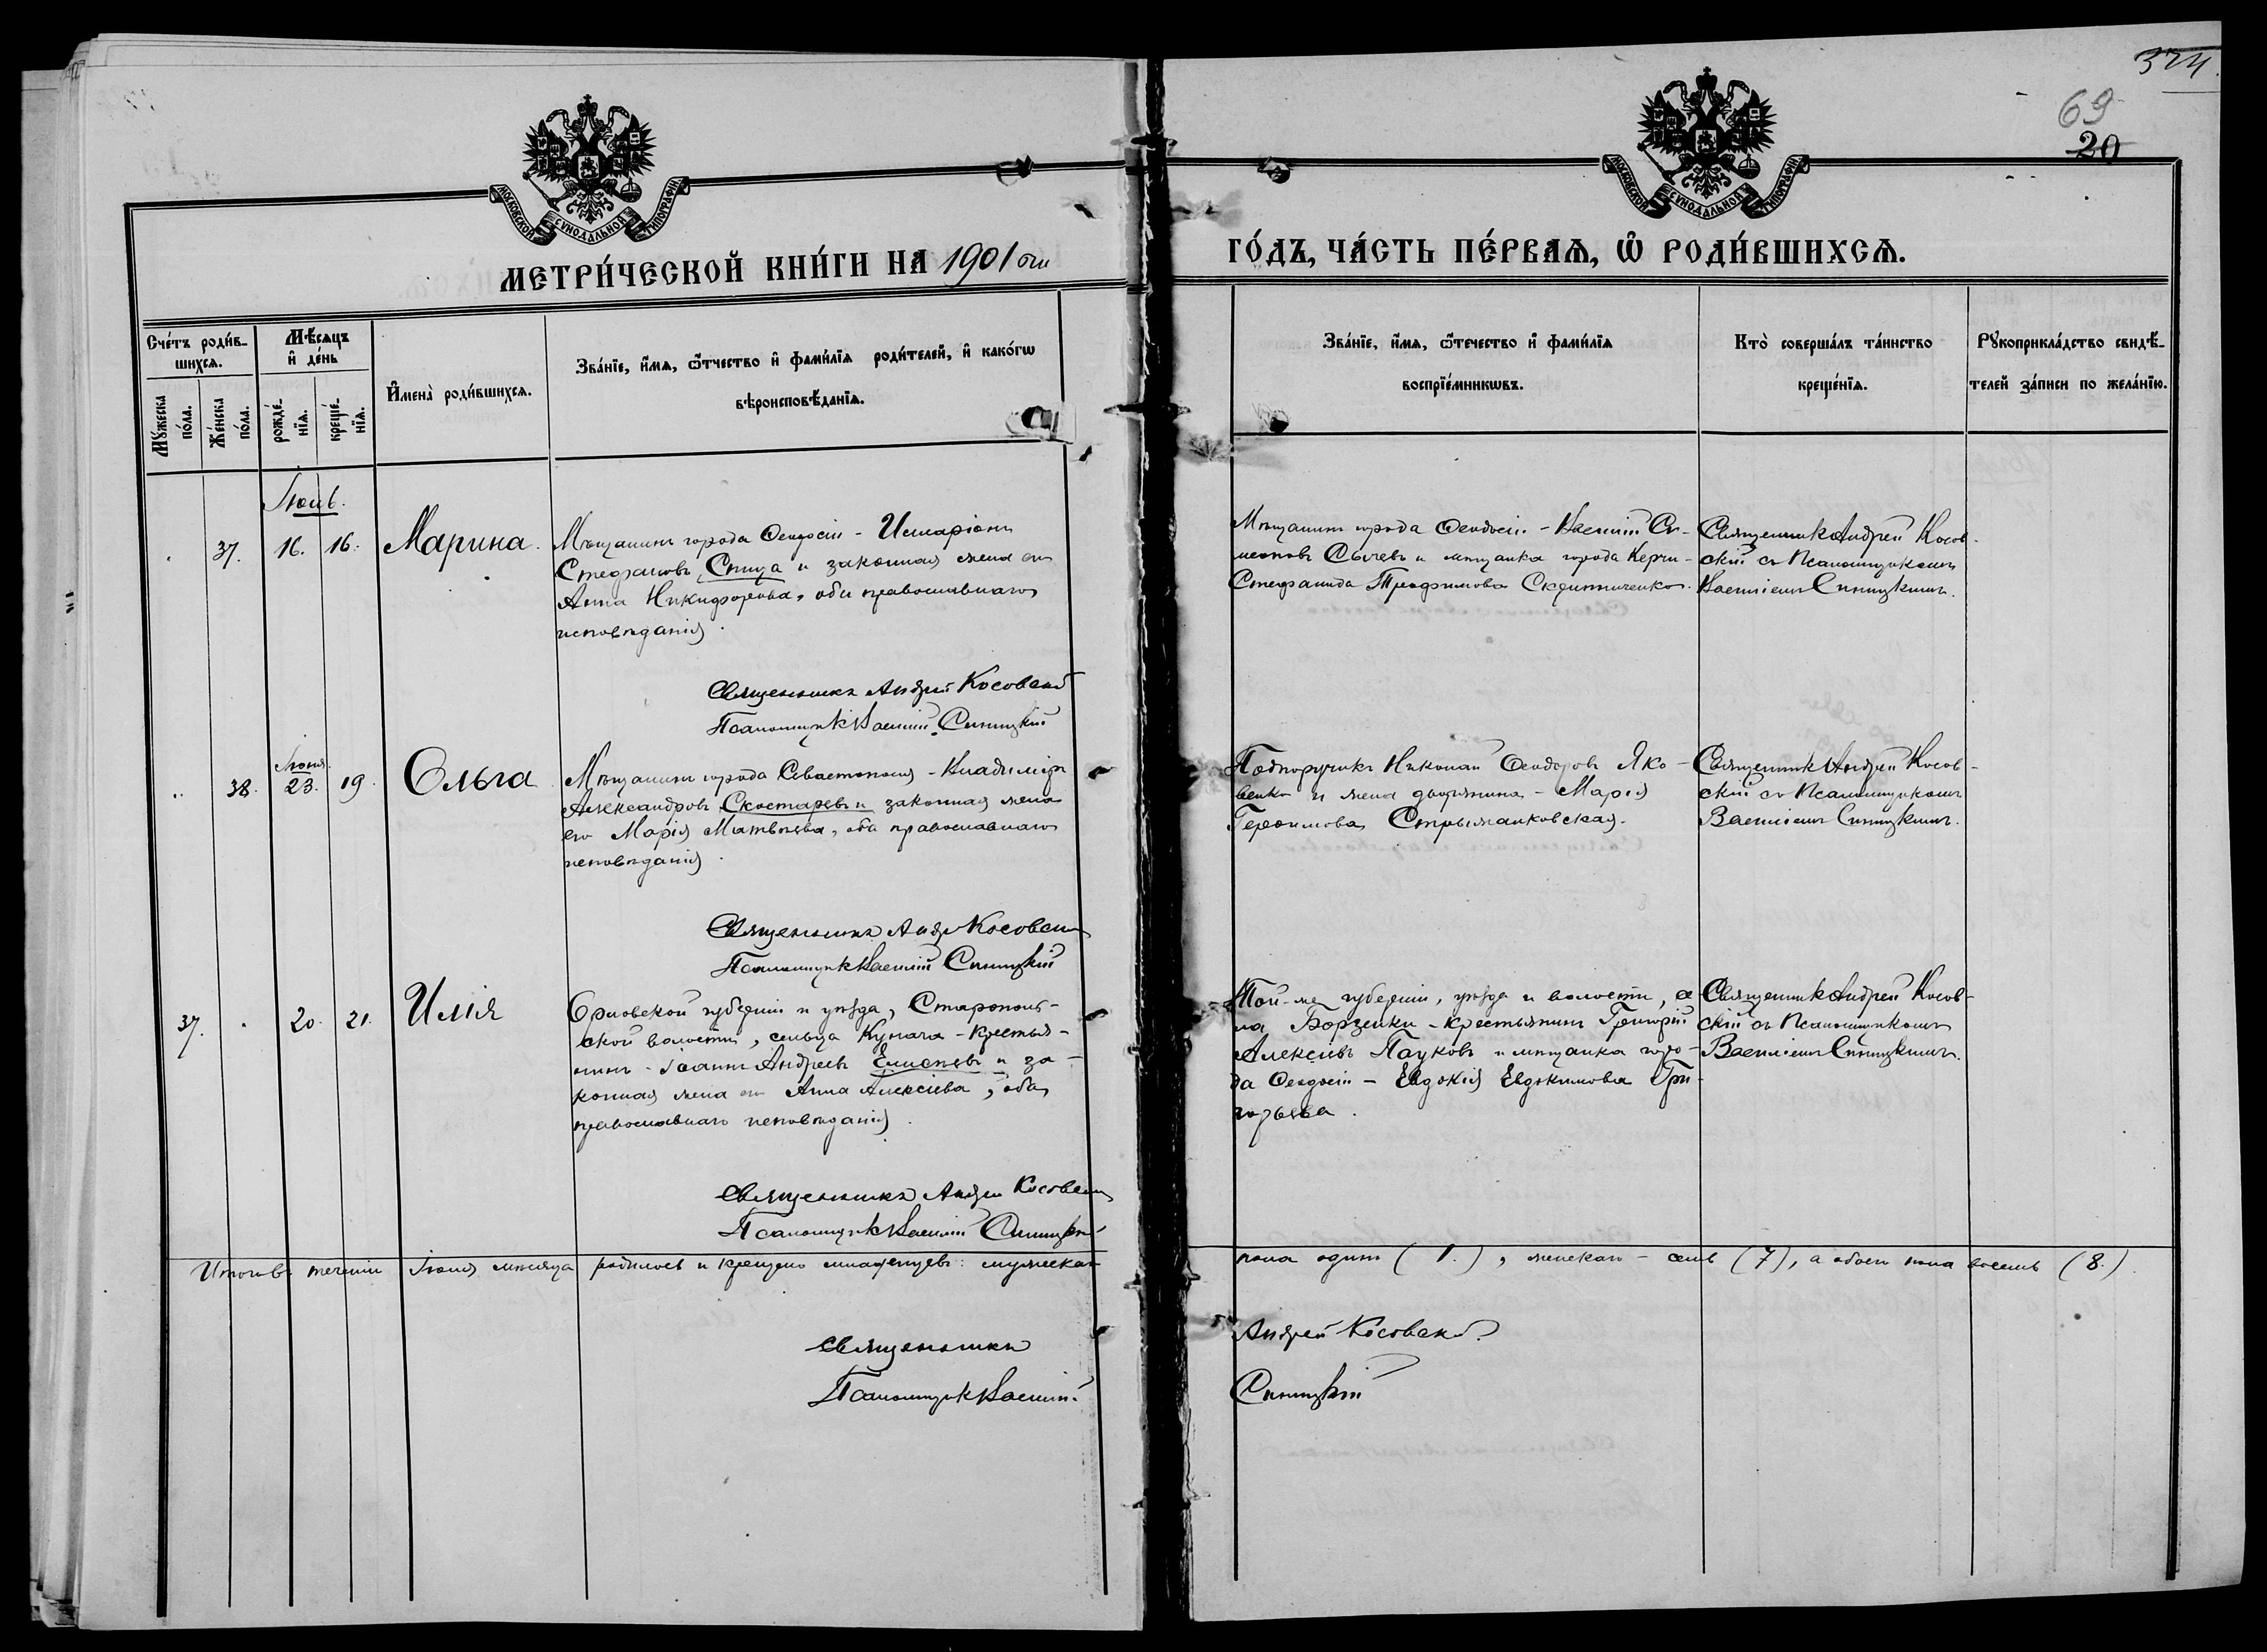 324.
69
20
МОСКОВСКОЙ СѴНОДАЛЬНОЙ ТИПОГРАФІИ
МОСКОВСКОЙ СѴНОДАЛЬНОЙ ТИПОГРАФІИ
МЕТРИ́ЧЕСКОЙ КНИ́ГИ НА 1901 ый
ГО́ДЪ, ЧА́СТЬ ПЕ́РВАЯ, Ѡ РОДИ́ВШИХСЯ.
Сче́тъ роди́в-
шихся.
Му́жеска
по́ла.
Же́нска
по́ла.
Мѣ́сяцъ
и де́нь
рожде́-
нія.
креще́-
нія.
Имена̀ роди́вшихся.
Зва́ніе, и́мя, ѻ́тчество и фами́лія роди́телей, и како́гѡ
вѣроисповѣ́данія.
Зва́ніе, и́мя, ѻ́течество и фами́лія
воспріе́мникѡвъ.
Кто̀ соверша́лъ та́инство
креще́нія.
Рꙋкоприкла́дство свидѣ́-
телей за́писи по жела́нію.
Іюль.
37. 16. 16. Марина.
Мѣщанинъ города Ѳеодосіи - Илларіонъ
Стефановъ Спица и законная жена его
Анна Никифорова, оба православнаго
исповѣданія.
Священникъ Андрей Косовскій
Псаломщикъ Василій Синицкій
Мѣщанинъ города Ѳеодосіи - Василій Си-
меоновъ Сычевъ и мѣщанка города Керчи -
Стефанида Трофимова
Священникъ Андрей Косов-
скій съ Псаломщикомъ
Василіемъ Синицкимъ.
38. Іюня 23. 19. Ольга
Мѣщанинъ города Севастополя - Владиміръ
Александровъ Скостаревъ и законная жена
его Марія Матвѣева, оба православнаго
исповѣданія.
Священникъ Андрей Косовскій
Псаломщикъ Василій Синицкій
Подпоручикъ Николай Ѳеодоровъ Яко-
венко и жена дворянина - Марія
Герасимова Стрыжаковская.
Священникъ Андрей Косов-
скій съ Псаломщикомъ
Василіемъ Синицкимъ.
37. 20. 21. Илія
Орловской губерніи и уѣзда, Старополь-
ской волости, сельца Кунача - крестья-
нинъ - Іоаннъ Андреевъ Елисѣевъ и за-
конная жена его Анна Алексіева, оба
православнаго исповѣданія.
Священникъ Андрей Косовскій
Псаломщикъ Василій Синицкій
Той-же губерніи, уѣзда и волости, се-
ла Борзенки - крестьянинъ Григорій
Алексіевъ Пауковъ и мѣщанка горо-
да Ѳеодосіи - Евдокія Евдокимова Гри-
горьева.
Священникъ Андрей Косов-
скій съ Псаломщикомъ
Василіемъ Синицкимъ.
Итого въ теченіи Іюля мѣсяца родилось и крещено младенцевъ: мужеска
пола одинъ (1.), женскаго - семь (7), а обоего пола восемь (8.)
Священникъ Андрей Косовскій
Псаломщикъ Василій Синицкій